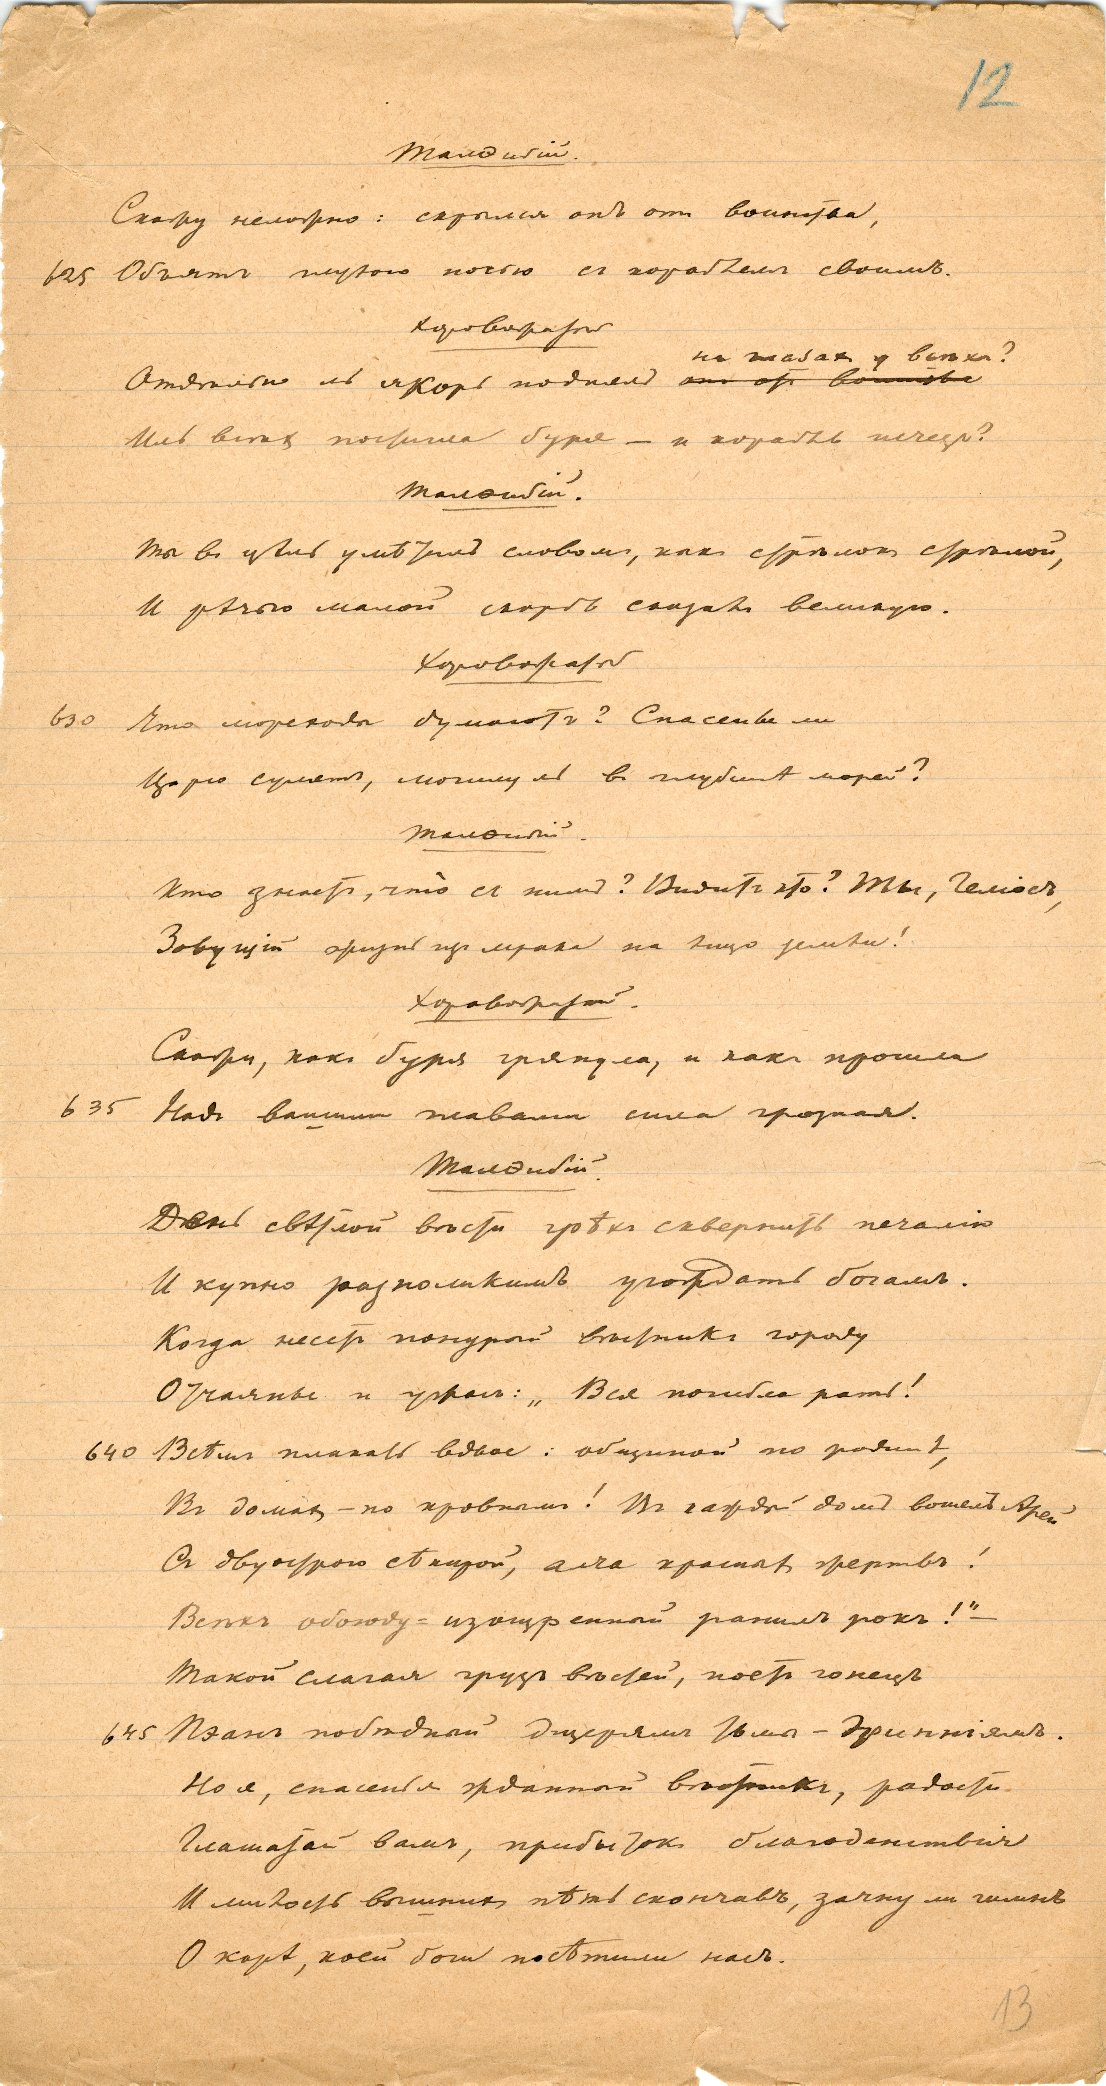 12
Талѳибій.
Скажу неложно: скрылся онъ отъ воинства,
625 Объятъ глухою ночью съ кораблемъ своимъ.
Хороводатый
на глазахъ у всѣхъ?
Отдѣльно ль якорь поднялъ онъ отъ воинства
Иль всѣхъ постигла буря – и корабль исчезъ?
Талѳибій.
Ты въ цѣль умѣтилъ словомъ, какъ стрѣлокъ стрѣлой,
И рѣчью малой скорбь сказалъ великую.
Хороводатый
630 Что мореходы думаютъ? Спасенье ли
Царю сулятъ, могилу ль въ глубинѣ морей?
Талѳибій.
Кто знаетъ, что̀ съ нимъ? Видитъ кто? Ты, Геліосъ,
Зовущій жизнь изъ мрака на лицо земли!
Хороводатый.
Скажи, какъ буря грянула, и какъ прошла
635 Надъ вашими главами сила грозная.
Талѳибій.
День свѣтлой вѣсти грѣхъ сквернить печалію
И купно разноликимъ угождать богамъ.
Когда несетъ понурый вѣстникъ городу
Отчаянье и ужасъ: „Вся погибла рать!
640 Всѣмъ плакать вдвое: общиной по родинѣ,
Въ домахъ – по кровнымъ! Въ каждый домъ вошелъ Арей
Съ двуострою сѣкирой, алча красныхъ жертвъ!
Всѣхъ обоюду-изощренный ранилъ рокъ!“ –
Такой слагая грузъ вѣстей, поетъ гонецъ
645 Пэанъ побѣдный дщерямъ тьмы – Эринніямъ.
Но я, спасенья жданный вѣстникъ, радости
Глашатай вамъ, прибытокъ благоденствія
И милость вышнихъ пѣть скончавъ, зачну ли гимнъ
О карѣ, коей боги посѣтили насъ.
13